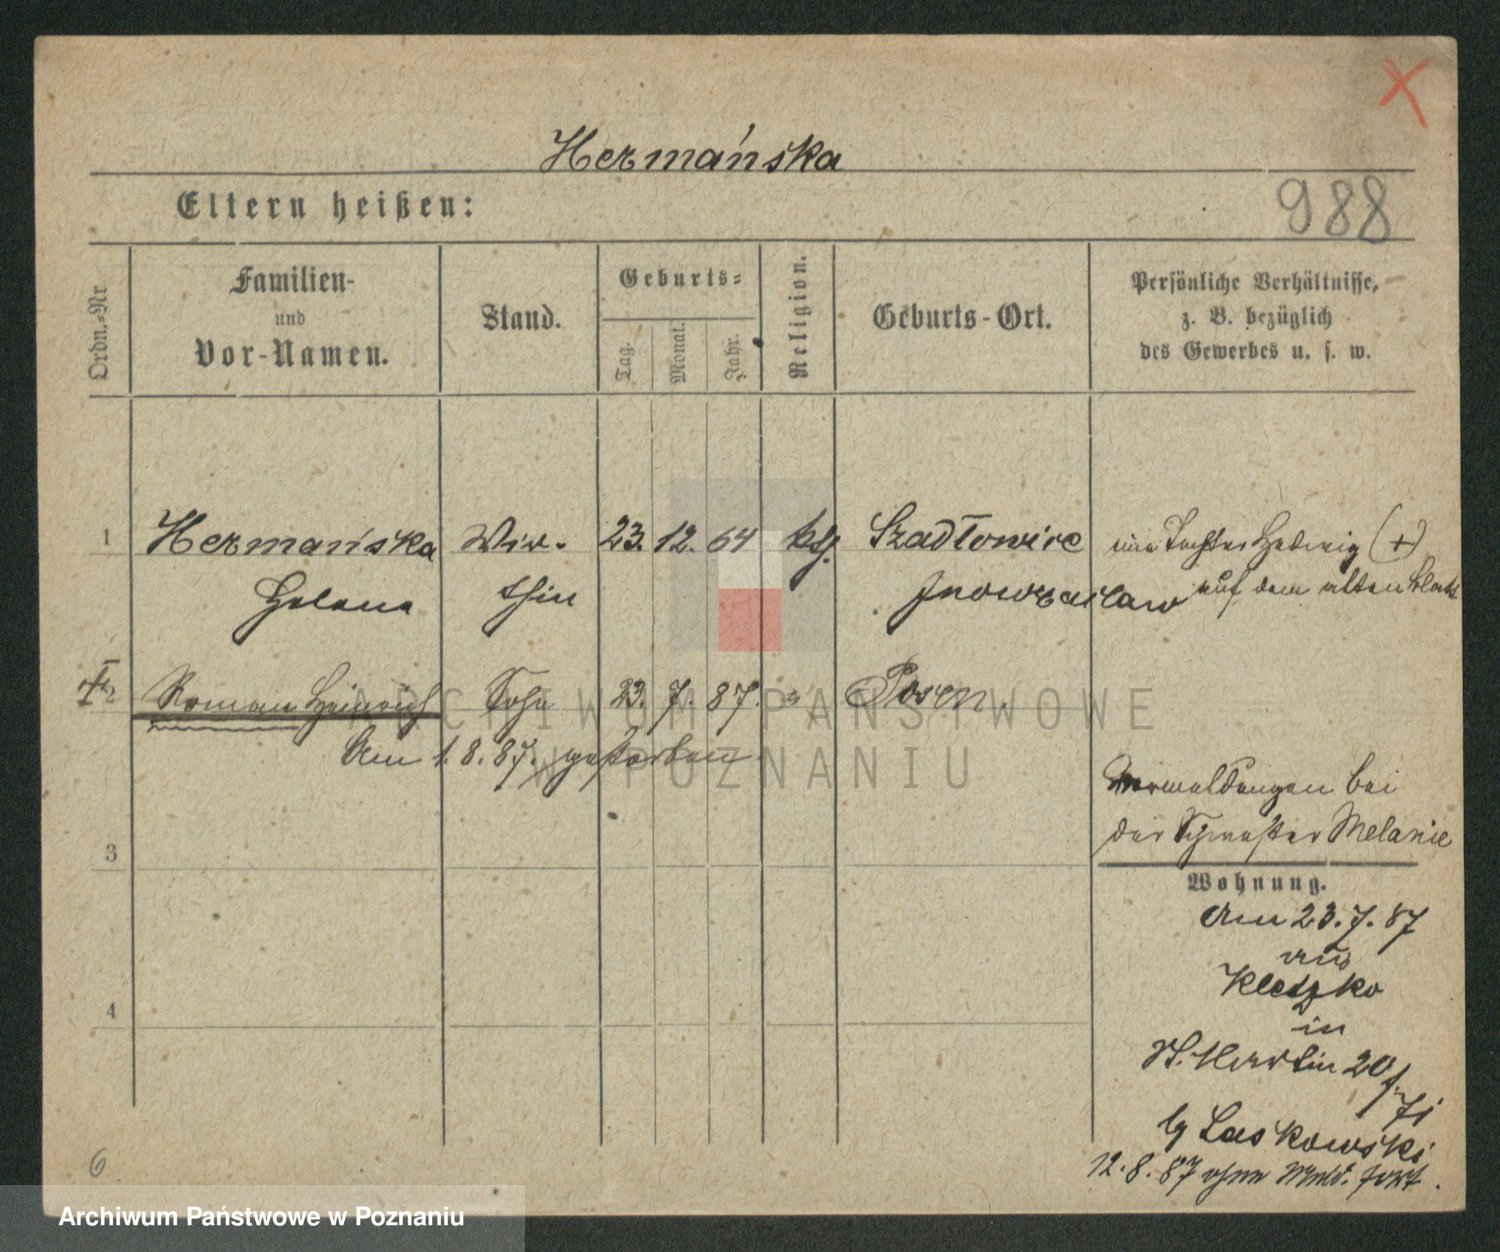 Hermańska
Eltern heißen:
988
Ordn.-Nr
Familien-
und
Vor-Namen.
Stand.
Geburts-
Tag.
Monat.
Jahr.
Religion.
Geburts-Ort.
Persönliche Verhältnisse,
z. B. bezüglich
des Gewerbes u. s. w.
1 Hermańska Wir- 23. 12. 64 klg. Szadłowice eine Tochter Hedwig (+)
Helena thin Inowrazlaw auf dem alten Blatt
2 Roman Heinrich Sohn 23. 7. 87. " Posen.
Am 1.8.87. gestorben
ARCHIWUM PAŃSTWOWE
W POZNANIU
Vermeldungen bei
der Schwester Melanie
3
Wohnung.
Am 23.7.87
aus
Kletzko
in
St. Martin 20
4
b/ Laskowski
12.8.87 ohne Meld. fort.
6
Archiwum Państwowe w Poznaniu